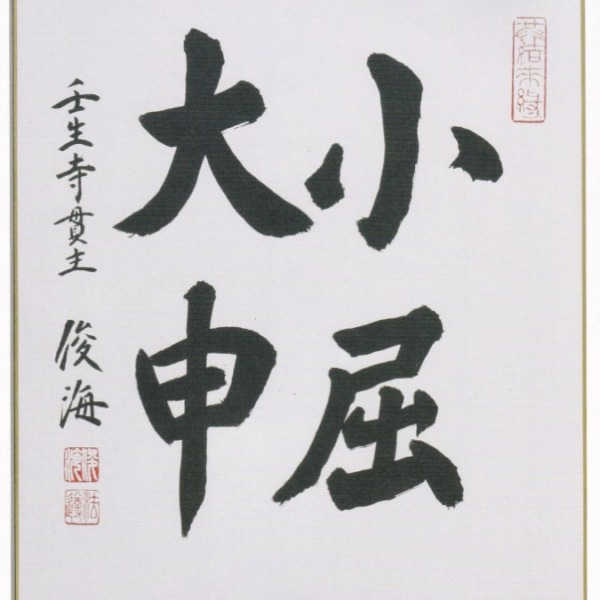 小屈
大申
壬生寺貫主 俊海